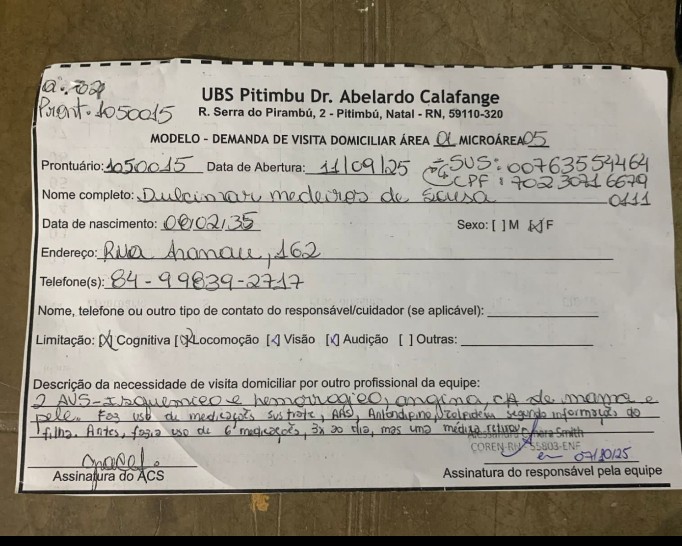 UBS Pitimbu Dr. Abelardo Calafange
Pront. 1050015
R. Serra do Pirambú, 2 - Pitimbú, Natal - RN, 59110-320
MODELO - DEMANDA DE VISITA DOMICILIAR ÁREA 01 MICROÁREA 05
Prontuário: 1050015 Data de Abertura: 11/09/25 SUS: 00763554464
CPF: 702 3071 6679
0111
Nome completo: Dulcimar medeiros de Sousa
Data de nascimento: 02,35 Sexo: [ ] M [x] F
Endereço: Rua , 162
Telefone(s): 84-99839-2717
Nome, telefone ou outro tipo de contato do responsável/cuidador (se aplicável):
Limitação: [x] Cognitiva [x] Locomoção [x] Visão [x] Audição [ ] Outras:
Descrição da necessidade de visita domiciliar por outro profissional da equipe:
2 AVS - Isquemico e hemorragico, angina, CA de mama e
pele. Faz uso de medicações sustrate, AAS, Anlondipino, Zolpidem segundo informações do
filho. Antes, fazia uso de 6 medicações, 3x ao dia, mas uma médica retirou.
Smith
COREN-RN 55803-ENF
em 07/10/25
Assinatura do ACS Assinatura do responsável pela equipe